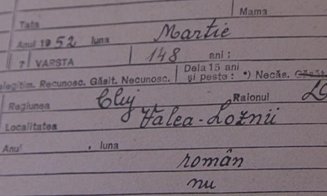 Tata
Mama
Anul 1952 luna Martie
? VARSTA 148 ani:
Dela 15 ani
elegitim. Recunosc. Găsit. Necunosc. și peste: *) Necăs.
Regiunea Cluj Raionul
Localitatea Valea-Loznii
Anul . luna
român
nu